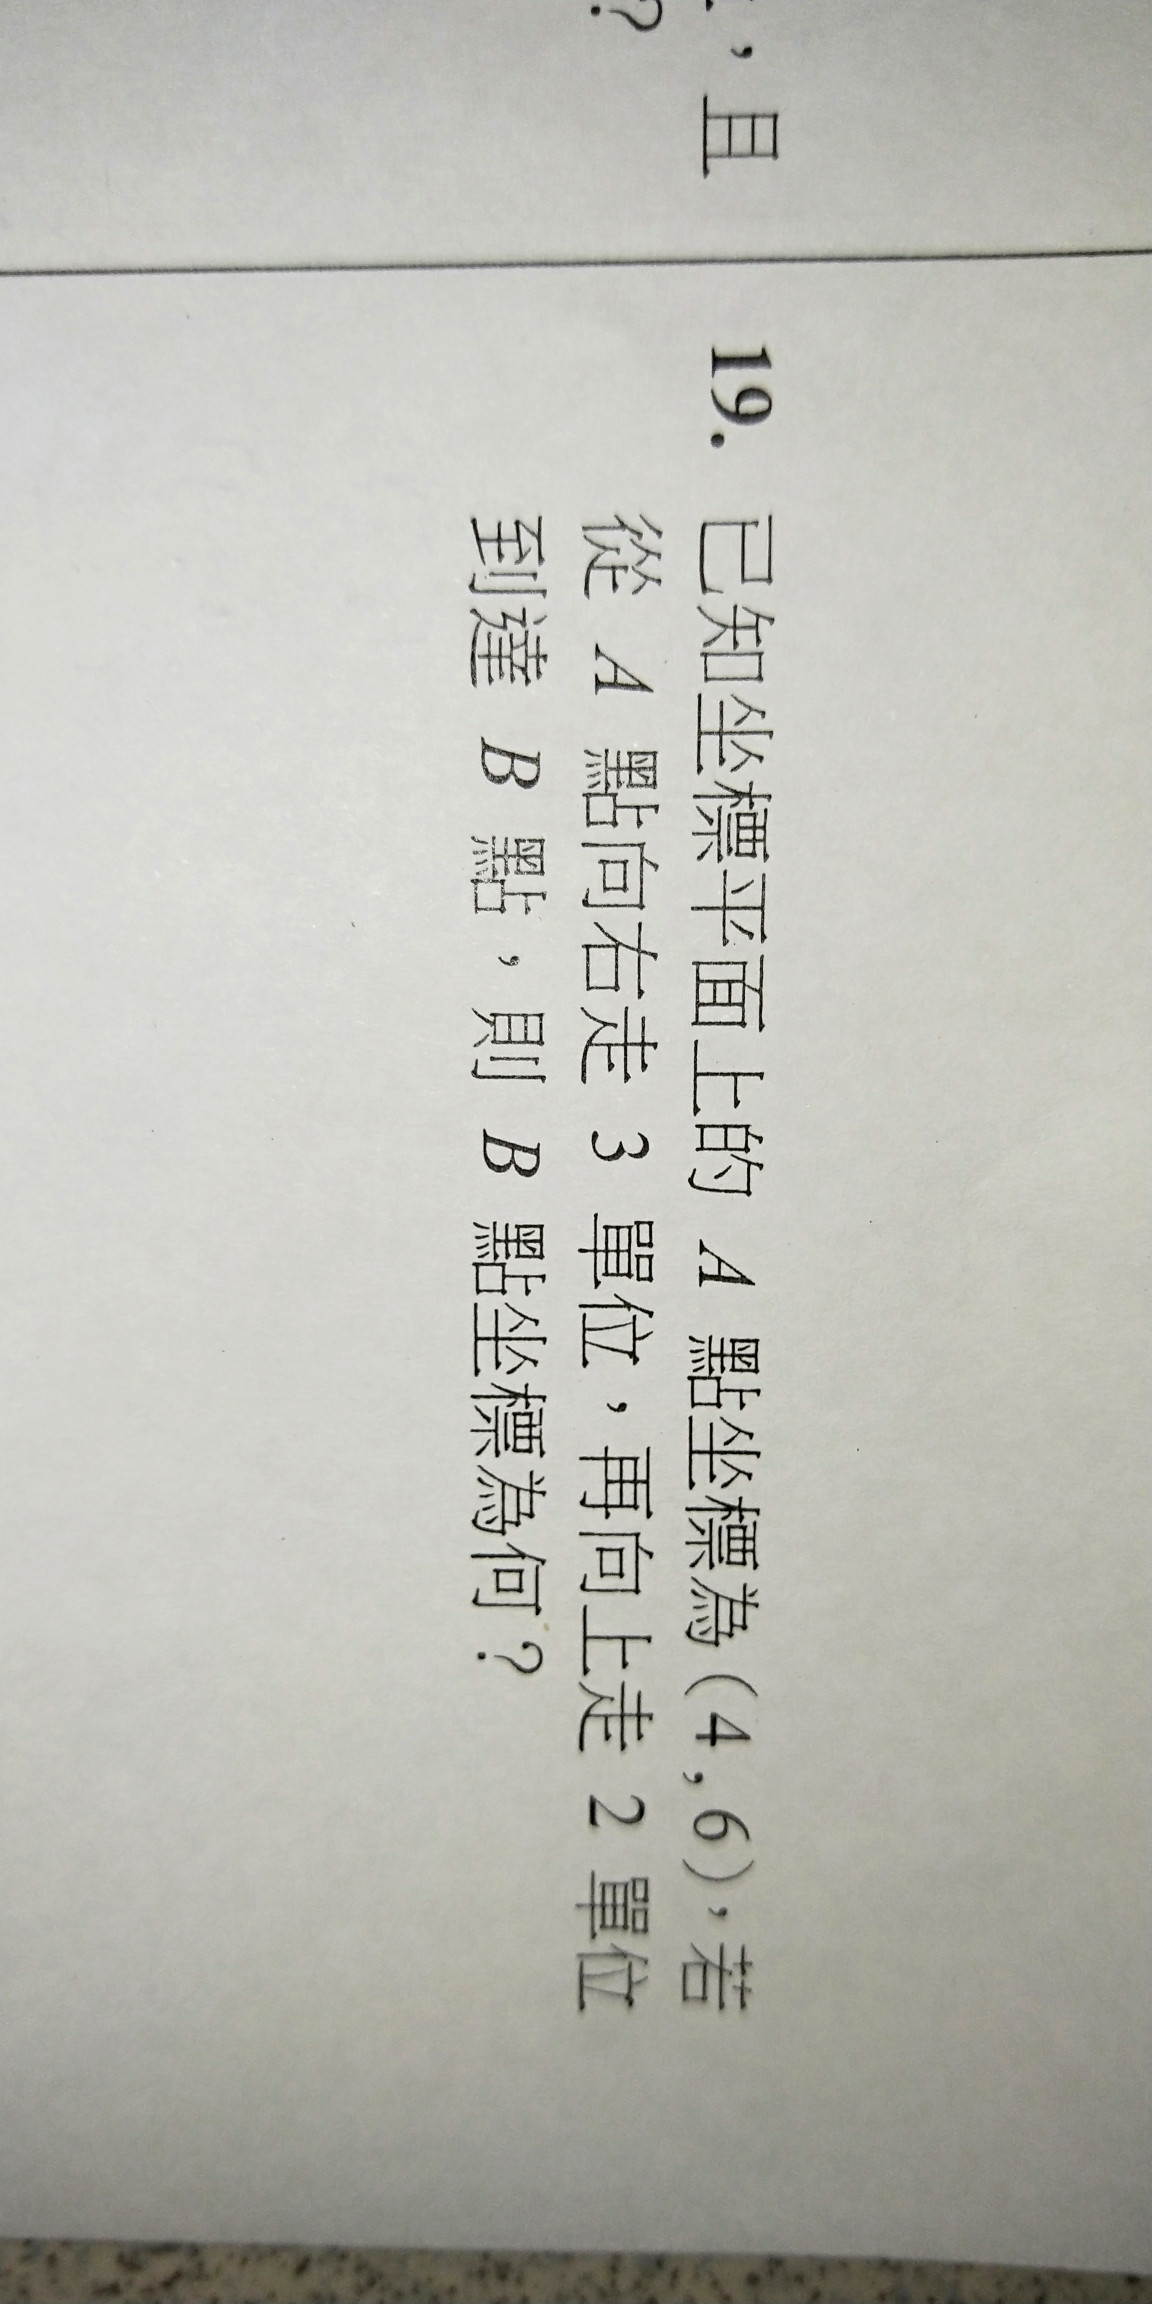 ，且
？
19. 已知坐標平面上的 A 點坐標為(4,6)，若
從 A 點向右走 3 單位，再向上走 2 單位
到達 B 點，則 B 點坐標為何？